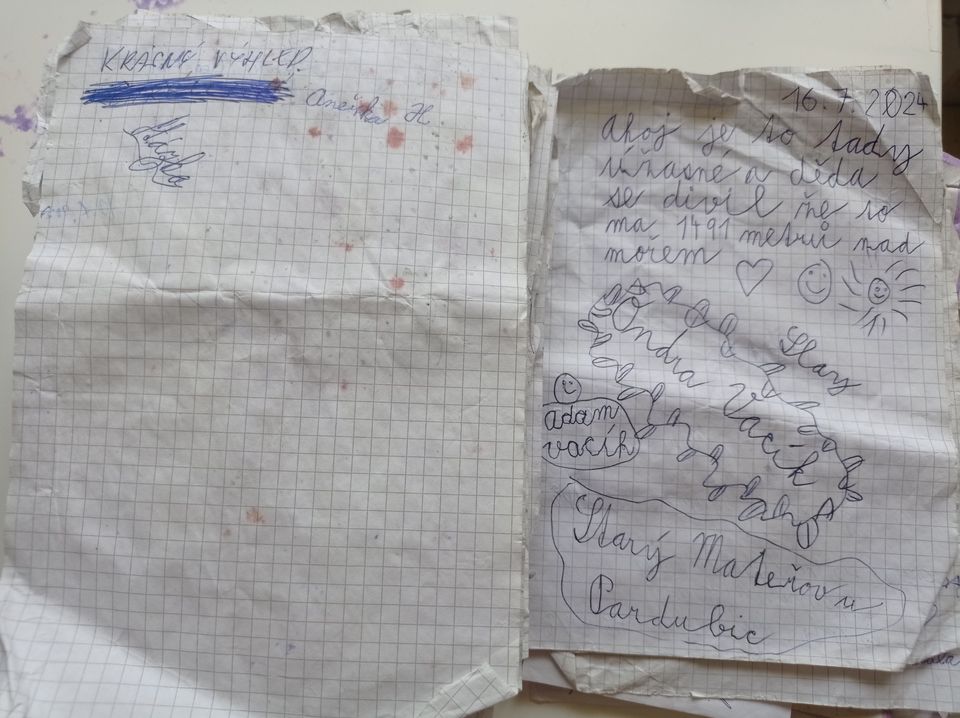 KRÁSNÝ VÝHLED.
Anežka H
16.7.2024
Ahoj je to tady
úžasné a děda
se divil že to
ma 1491 metrů nad
mořem
Ondra Vacík
Starý
adam
vacík
Starý Mateřov u
Pardubic